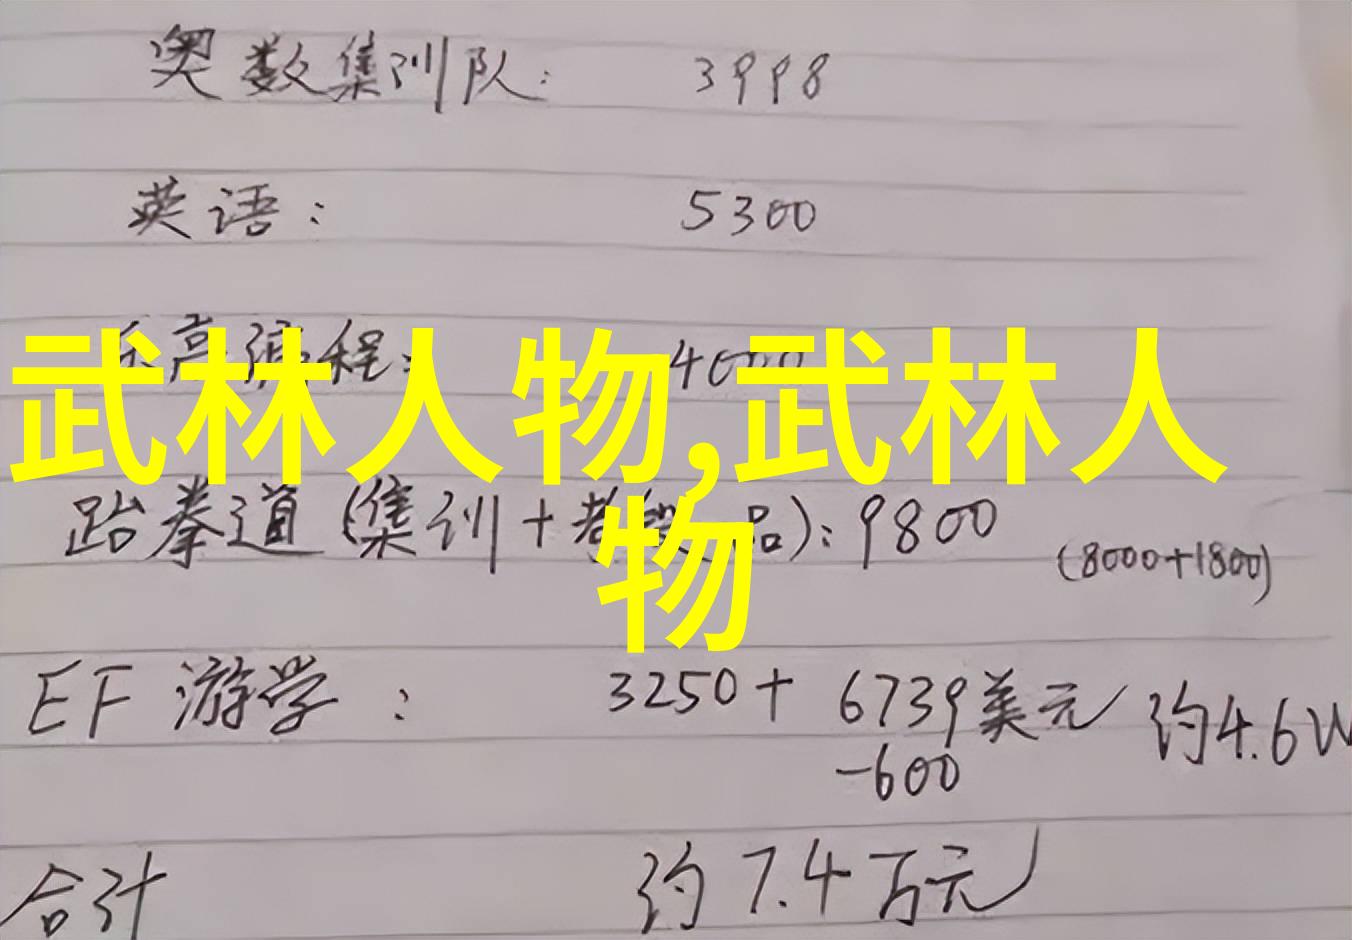 奥数集训队: 3998
英语: 5300
乐高编程: 4000
武林人物,武林人
物
跆拳道(集训+考 品): 9800
(8000+1800)
EF 游学: 3250+ 6739美元 约4.6W
-600
合计 约7.4万元